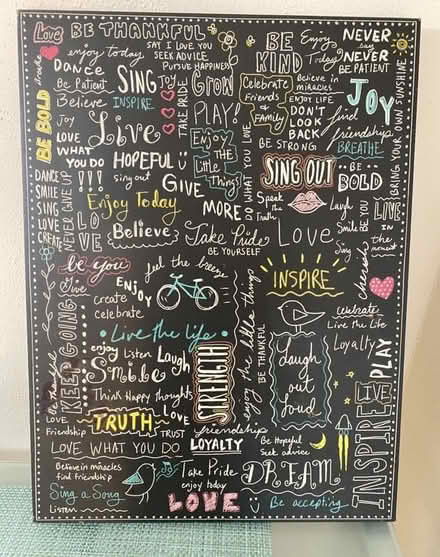 Love BE THANKFUL
enjoy today
SAY I LOVE YOU
SEEK ADVICE
PURSUE HAPPINESS
BE KIND
Enjoy
NEVER
say
NEVER
BE PATIENT
DANCE
Be Patient
Believe
INSPIRE
SING
JOY
GROW
Celebrate
Friends
&
Family
Believe in
miracles
ENJOY LIFE
DON'T
LOOK
BACK
JOY
find
friendship
BREATHE
BE BOLD
JOY
LOVE
Live
TAKE PRIDE
PLAY!
ENJOY
the
Little
Things
DO WHAT YOU LOVE
BE STRONG
BRING YOUR OWN SUNSHINE
WHAT
YOU DO
HOPEFUL
sing out
SING OUT
BE
BOLD
DANCE
SMILE
SING
LOVE
CREATE
NEVER GIVE UP
!!!
Enjoy Today
GIVE
MORE
Speak
the
Truth
Laugh
Smile
BE YOU
LIVE
IN
the
moment
LOVE
Believe
Take Pride
BE YOURSELF
Love
Sing
cherish
be you
Give
feel the breeze
ENJOY
create
celebrate
INSPIRE
KEEP GOING
Live the life
enjoy the little things
BE THANKFUL
celebrate
Live the Life
Loyalty
enjoy Listen Laugh
Smile
Think Happy thoughts
STRENGTH
Laugh
out
loud
PLAY
be thankful
LOVE
TRUTH
LOVE
Friendship
TRUST
friendship
LOVE WHAT YOU DO
LOYALTY
Be Hopeful
Seek advice
INSPIRE
LIVE
Believe in miracles
find friendship
JOY
Take Pride
enjoy today
DREAM
Sing a Song
Listen
LOVE
Be accepting